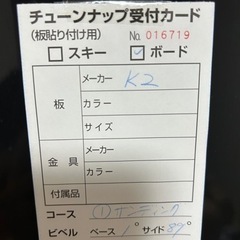 チューンナップ受付カード
(板貼り付け用) No. 016719
□スキー ☑ボード
板 メーカー K2
カラー
サイズ
金具 メーカー
カラー
付属品
コース ①サンディング
ベベル ベース 1° サイド 89°